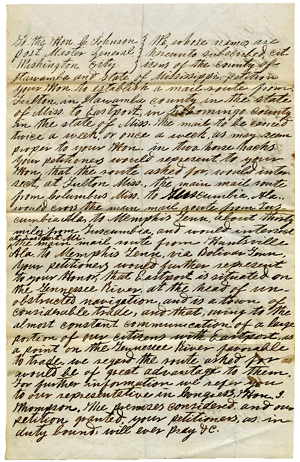 To the Hon C Johnson } We, whose names are
Post Master General } hereunto subscribed, cit
Washington City } izens of the county of
Itawamba and State of Mississippi, petition
your Hon to establish a mail route from
Fulton, in Itawamba county in the state
of Miss. to Eastport, in Tishomingo county
in the state of Miss. The route to be conveyed
twice a week or once a week as may seem
proper to your Hon, in two horse hacks.
Your petitioners would represent to your
Hon, that the route asked for, would inter
sect, at Fulton Miss, the main mail route
from Columbus Miss. to Tuscumbia, Ala.
would cross the main mail route from Tus
cumbia Ala, to Memphis Tenn, about thirty
miles from Tuscumbia, and would intersect
the main mail route from Huntsville
Ala. to Memphis Tenn, via Bolivar Tenn.
Your petitioners would further represent
to your Honor, that Eastport is situated on
the Tennessee River, at the head of un
obstructed navigation, and is a town of
considerable trade, and that, owing to the
almost constant communication of a large
portion of our citizens with Eastport, as
a point on the Tennessee River favorable
to trade and, the route asked for
would be of great advantage to them.
For further information we refer you
to our representative in Congress, Hon. J.
Thompson. The premises considered, and our
petition granted, your petitioners, as in
duty bound, will ever pray &C.